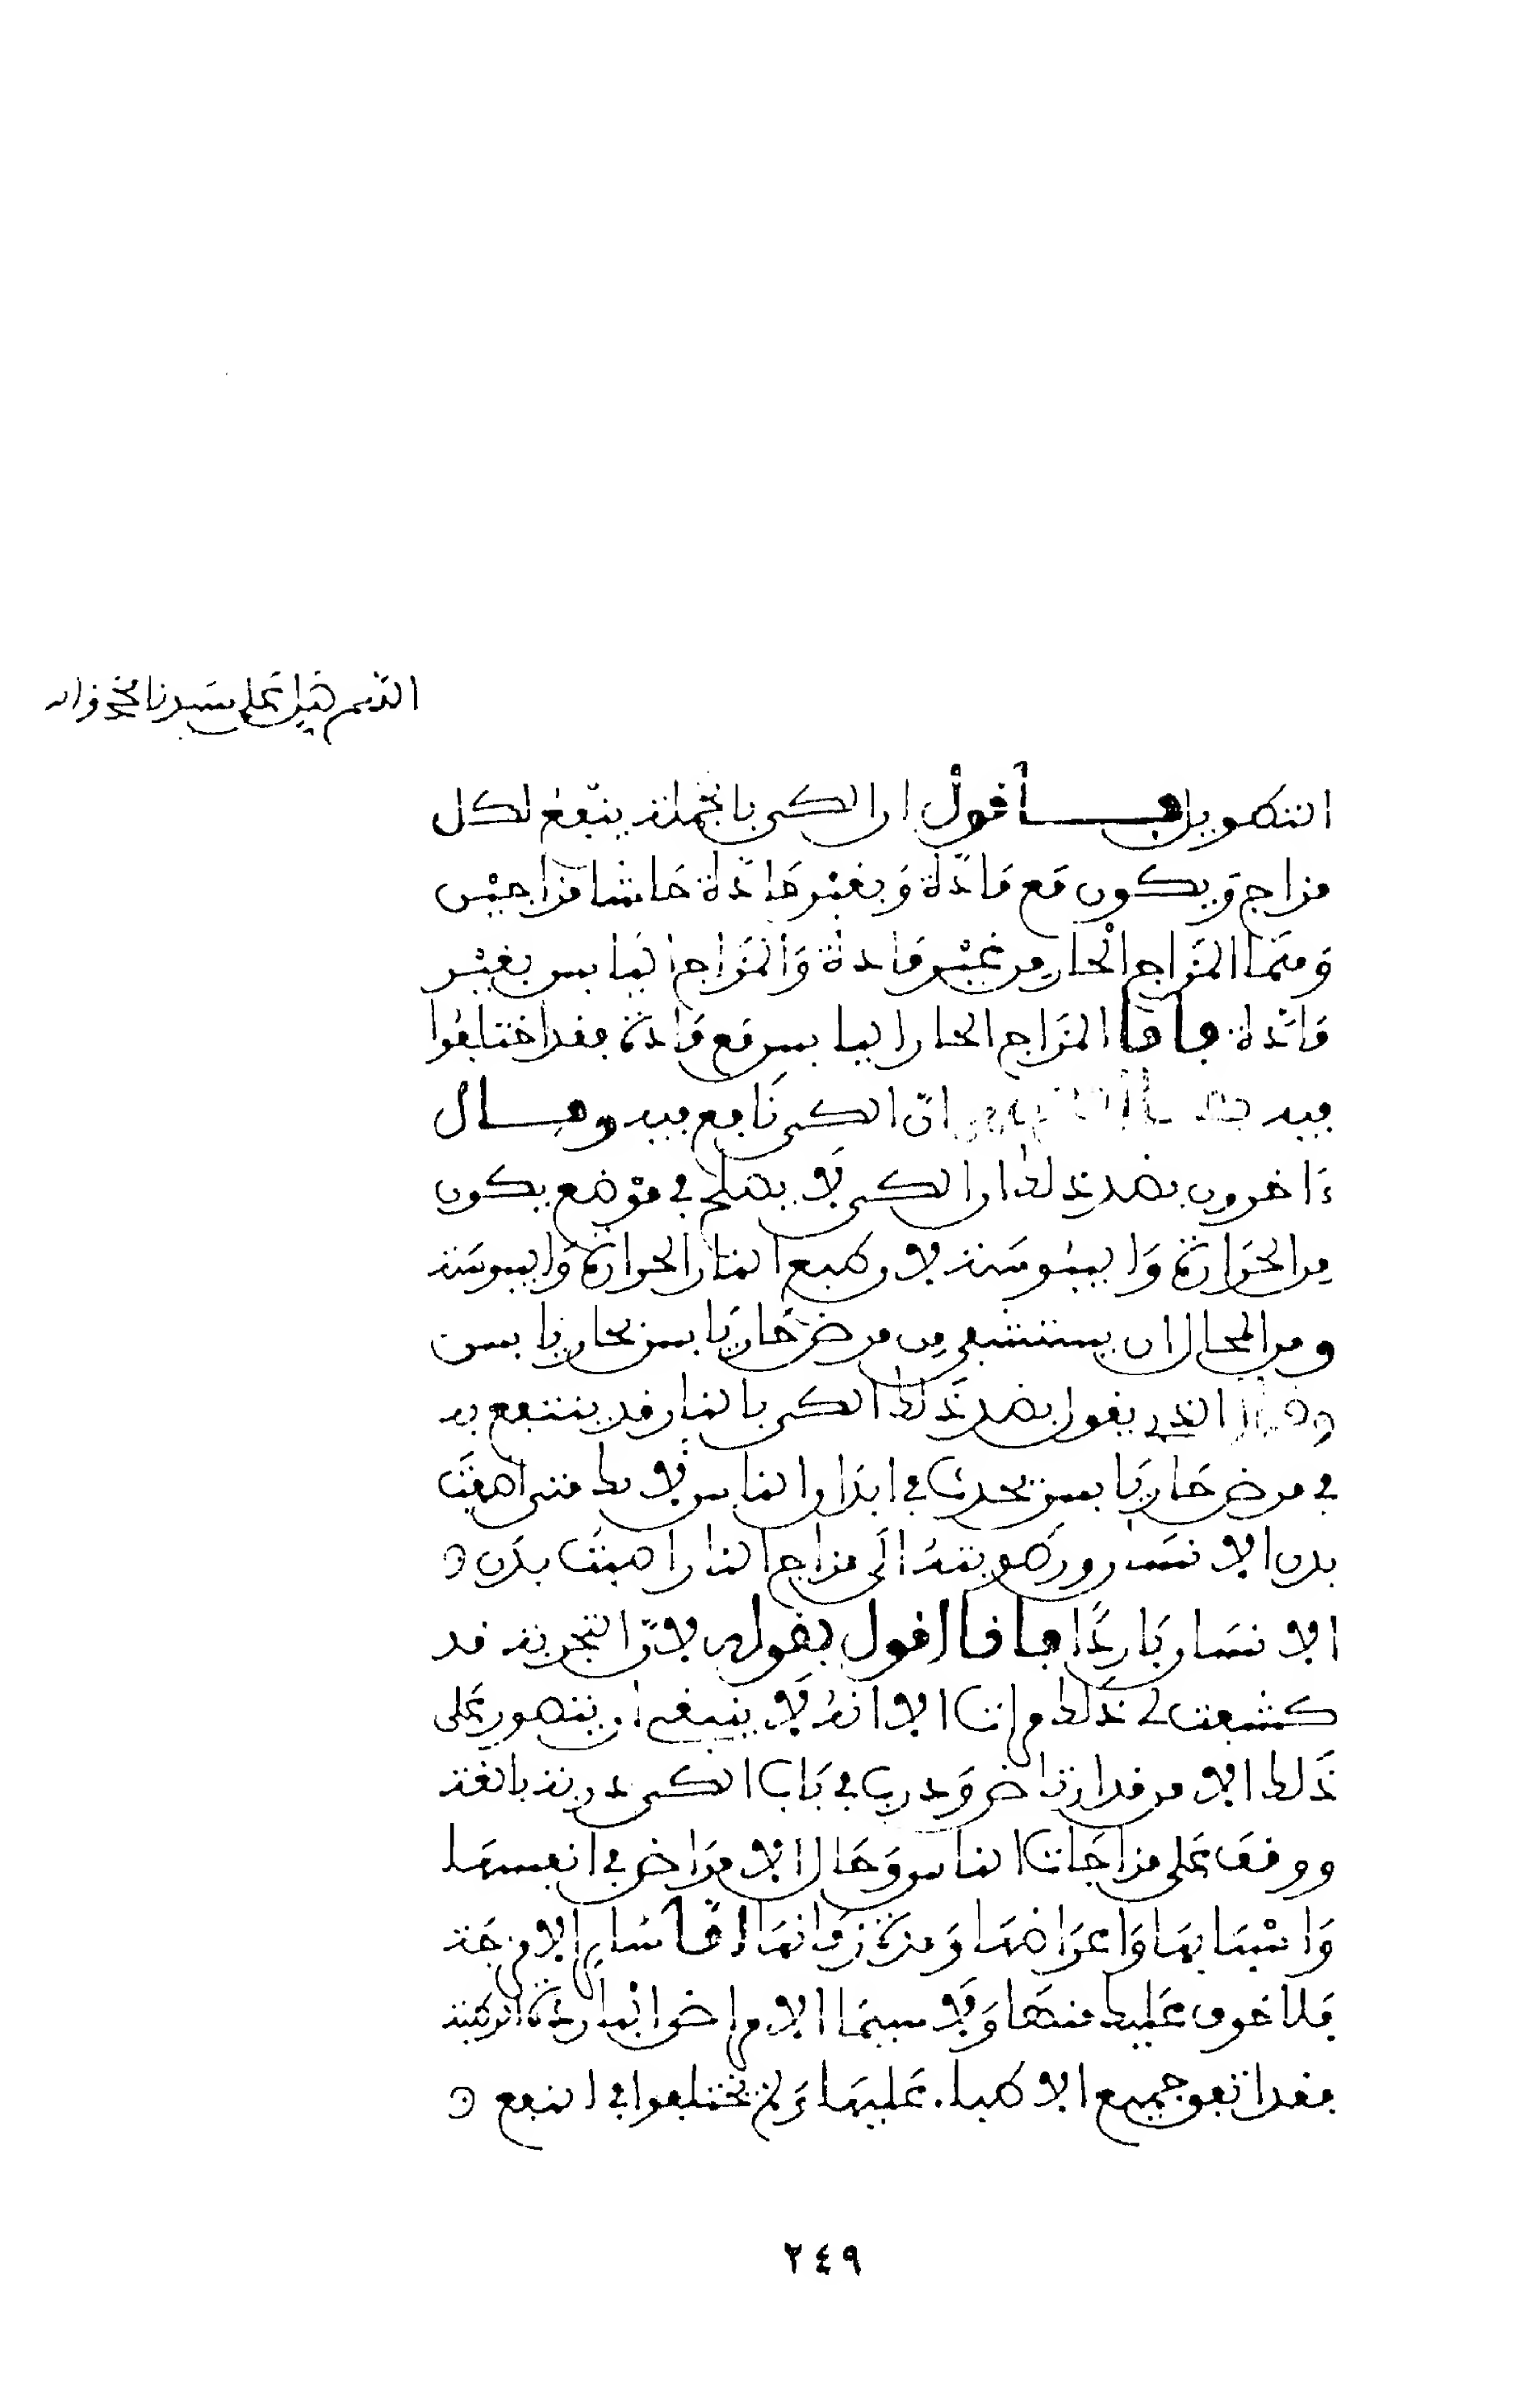 اللهم صل على سيدنا محمد وآله
التطويل فأقول ان الكي بالجملة ينفع لكل
مزاج ويكون مع مَادّة وبغير مَادّة حَاشا مزاجين
وهمَا المزاج الحار من غير مادة والمزاج اليابس بغير
مَادّة فاما المزاج الحار اليابس مع مَادة فقد اختلفوا
فيه انّ الكي نَافع فيه وقال
ءاخرون بضد ذلك ان الكي لَا يصلح في موْضع يكون
من الحَرَارة وَاليبُوسَة لان طبع النار الحرارة وَاليبوسَة
ومن المحال ان يستشفى من مرض حَار يَابس بحار يابس
وقال الذي يقول بضد ذَلك الكي بالنار قد ينتفع به
في مرض حَار يَابس يحدث في ابدَان الناس لأنك متى اضفتَ
بدن الانسَان ورطوبتهُ الَى مزاج النار اصبتَ بدَن
الانسَان بَاردًا فانا اقول بقوله لانّ التجربة قد
كشفت لي ذَلك مرات الا انهُ لَا ينبغي ان يتصور عَلى
ذَلك الا من قد ارتاض وَدرب في بَاب الكي دربة بالغة
ووقفَ عَلى مزاجَات الناس وَحَال الامرَاض في انفسهَا
وَاسْبَابهَا وَاعرَاضهَا وَمدة زمَانهَا امّا سَاير الامزجَة
فلا خوف عَليك منهَا وَلَا سيمَا الامراض البَاردَة الرطبة
فقد اتفق جميع الاطباء عَليهَا وَلم يختلفوا في النفع
٢٤٩